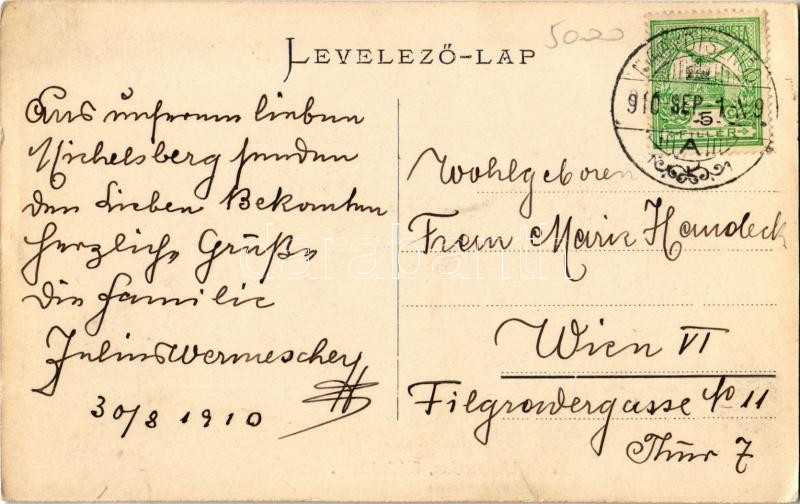 5020
LEVELEZŐ-LAP
910 SEP. 1.
5
FILLÉR
A
Aus unserem lieben
Michelsberg senden
den Lieben Bekanten
herzliche Grüße
die Familie
Julius Wermescher
30/8 1910
Wohlgeboren
Frau Marie Handeck
Wien VI
Filgradergasse No 11
Thür 7
darabanth